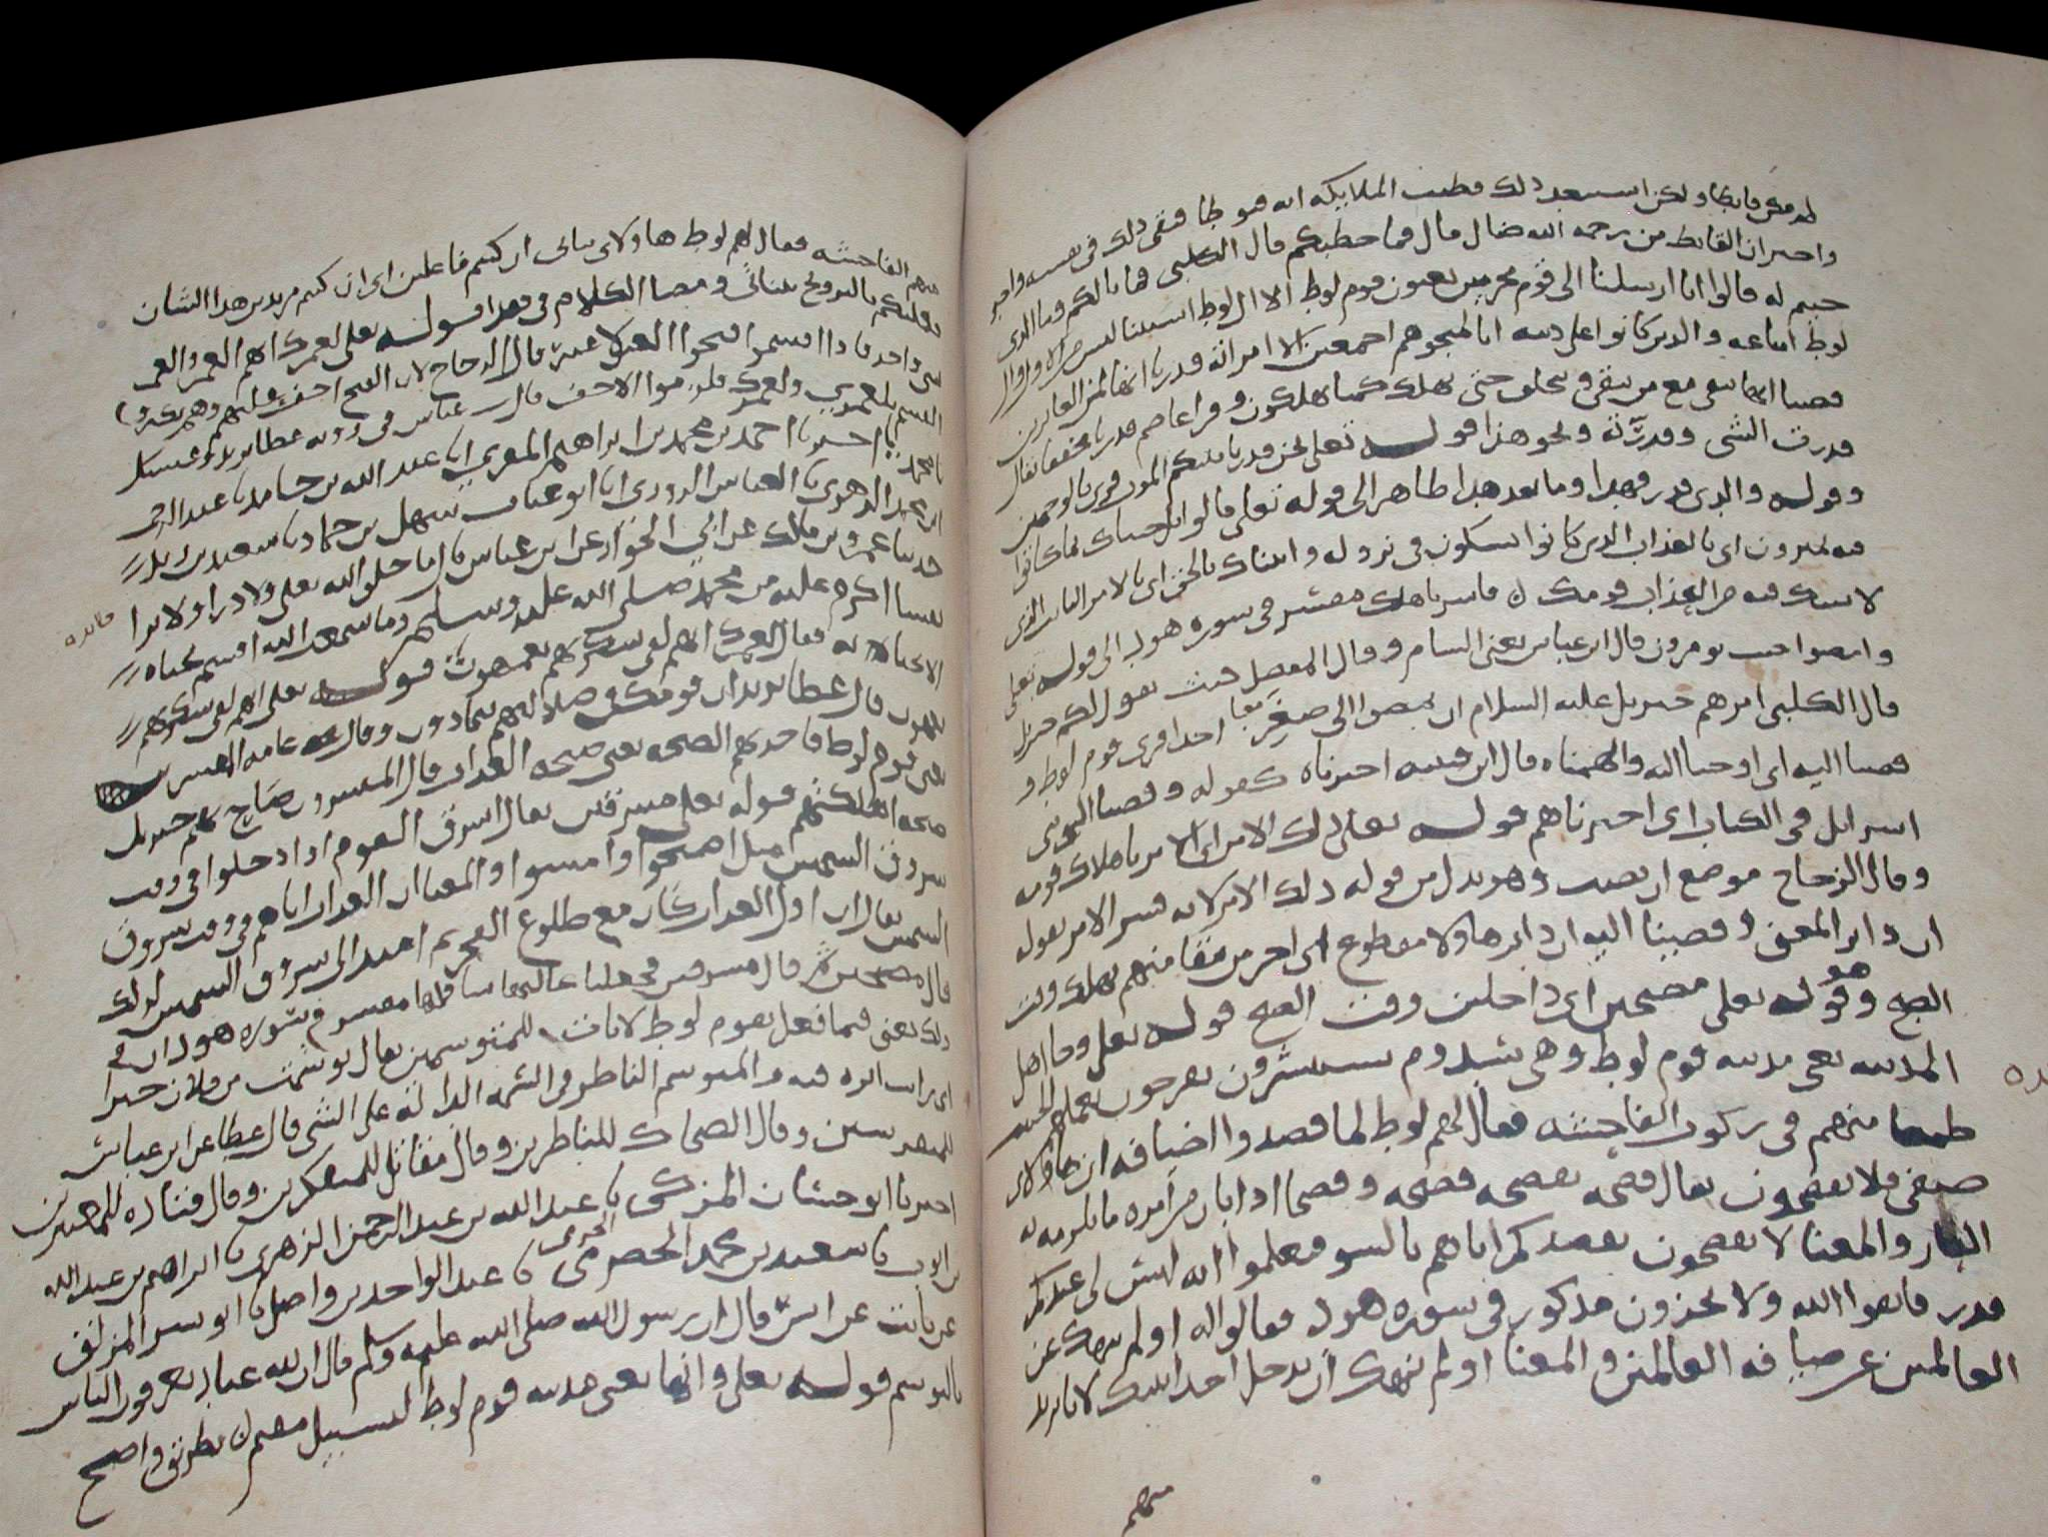 لم يكن قانطا ولكن استبعد ذلك فظنت الملايكه انه قنوطا فنفى ذلك عن نفسه واخبر
واخبر ان القانط من رحمه الله ضال قال فما خطبكم قال الكلبى فما بالكم وما الذى
جيتم له قالوا انا ارسلنا الى قوم مجرمين يعنون قوم لوط الا ال لوط استثنا ليس من الاول وال
لوط اتباعه والذين كانوا على دينه انا لمنجوهم اجمعين الا امراته قدرنا انها لمن الغابرين
قضينا انها تبقى مع من يبقى وتتخلف حتى تهلك كما يهلكون وقرا عاصم قدرنا مخففا يقال
قدرت الشى وقدرته ونحو هذا قوله تعلى نحن قدرنا بينكم الموت قرى بالوجهين
وقوله والذى قدر فهدا وما بعد هذا ظاهر الى قوله تعلى قالوا بل جيناك بما كانوا
فيه يمترون اى بالعذاب الذى كانوا يشكون فى نزوله واتيناك بالحق اى بالامر الثابت الذى
لا شك فيه من العذاب قومك فاسر باهلك مفسر فى سوره هود الى قوله تعلى
وامضوا حيث تومرون قال ابن عباس يعنى الشام وقال المفضل حيث يقول لكم جبريل
قال الكلبى امرهم جبريل عليه السلام ان يمضوا الى صغر احدا قرى قوم لوط و
قضينا اليه اى اوحينا اليه والهمناه قال ابن قتيبه اخبرناه كقوله وقضينا الى بنى
اسرايل فى الكتاب اى اخبرناهم قوله تعلى ذلك الامر اى الامر باهلاك قومه
وقال الزجاج موضع ان نصب وهو بدل من قوله ذلك الامر لانه فسر الامر بقوله
ان دابر المعنى وقضينا اليه ان دابر هاولا مقطوع اى اخر من تبقا منهم يهلك وقت
الصبح وهو قوله تعلى مصبحين اى داخلين وقت الصبح قوله تعلى وجا اهل
المدينه يعنى مدينه قوم لوط وهى سدوم يستبشرون يفرحون بعملهم الخبيث
طمعا منهم فى ركوب الفاحشه فقال لهم لوط لما قصدوا اضيافه ان هاولاى
ضيفى فلا تفضحون يقال فضحه يفضحه فضحه وفضحا اذا ابان من امره ما يلزمه به
العار والمعنا لا تفضحون بقصدكم اياهم بالسو فيعلموا انه ليس لى عندكم
قدر فاتقوا الله ولا تخزون مذكور فى سوره هود فقالوا له اولم ننهك عن
العالمين عن ضيافه العالمين والمعنا اولم ننهك ان تدخل احدا بيتك لانا نريد
منهم
منهم الفاحشه فقال لهم لوط هاولاى بناتى ان كنتم فاعلين اى ان كنتم مريدين هذا الشان
فعليكم بالتزويج ببناتى ومضا الكلام فى هذا قوله تعلى لعمرك انهم العمر والعمر
شى واحد فاذا اقسموا فتحوا العين لا غير قال الزجاج لان الفتح اخف عليهم وهم يكثرو
القسم بلعمرى ولعمرك فلزموا الاخف قال ابن عباس فى روايه عطا يريد وعيشك
يا محمد اخبرنا احمد بن محمد بن ابراهيم المقرى انا عبد الله بن حامد نا عبد الرحمن
ابن محمد الزهرى نا العباس الدورى انا ابو عتاب سهل بن حماد نا سعيد بن زيد
حدثنا عمرو بن مالك عن ابى الجوزا عن ابن عباس قال ما خلق الله تعلى ولا ذرا ولا برا
نفسا اكرم عليه من محمد صلى الله عليه وسلم وما سمعت الله اقسم بحياه
الا بحياته فقال لعمرك انهم لفى سكرتهم يعمهون قوله تعلى انهم لفى سكرتهم
يعمهون قال عطا يريد ان قومك فى ضلالتهم يتمادون وقال عامه المفسرين
يعنى قوم لوط فاخذتهم الصيحه يعنى صيحه العذاب قال المفسرون صاح بهم جبريل
صيحه اهلكتهم قوله تعلى مشرقين يقال اشرق القوم اذا دخلوا فى وقت
شروق الشمس مثل اصبحوا وامسوا والمعنا ان العذاب اتاهم فى وقت شروق
الشمس يقال ان اول العذاب كان مع طلوع الفجر ثم امتد الى شروق الشمس لذلك
قال مصبحين ثم قال مشرقين فجعلنا عاليها سافلها مفسر فى سوره هود ان فى
ذلك يعنى فيما فعل بقوم لوط لايات للمتوسمين يقال توسمت من فلان خيرا
اى رايت اثره فيه والمتوسم الناظر فى السمه الداله على الشى قال عطا عن ابن عباس
للمتفرسين وقال الضحاك للناظرين وقال مقاتل للمتفكرين وقال قتاده للمعتبرين
اخبرنا ابو حسان المزكى نا عبد الله بن عبد الرحمن الزهرى نا ابراهيم بن عبد الله
بن ايوب نا سعيد بن محمد الجرمى نا عبد الواحد بن واصل نا ابو بشر المزلق
عن ثابت عن انس قال ان رسول الله صلى الله عليه وسلم قال ان لله عبادا يعرفون الناس
بالتوسم قوله تعلى وانها يعنى مدينه قوم لوط لبسبيل مقيم بطريق واضح
فايده